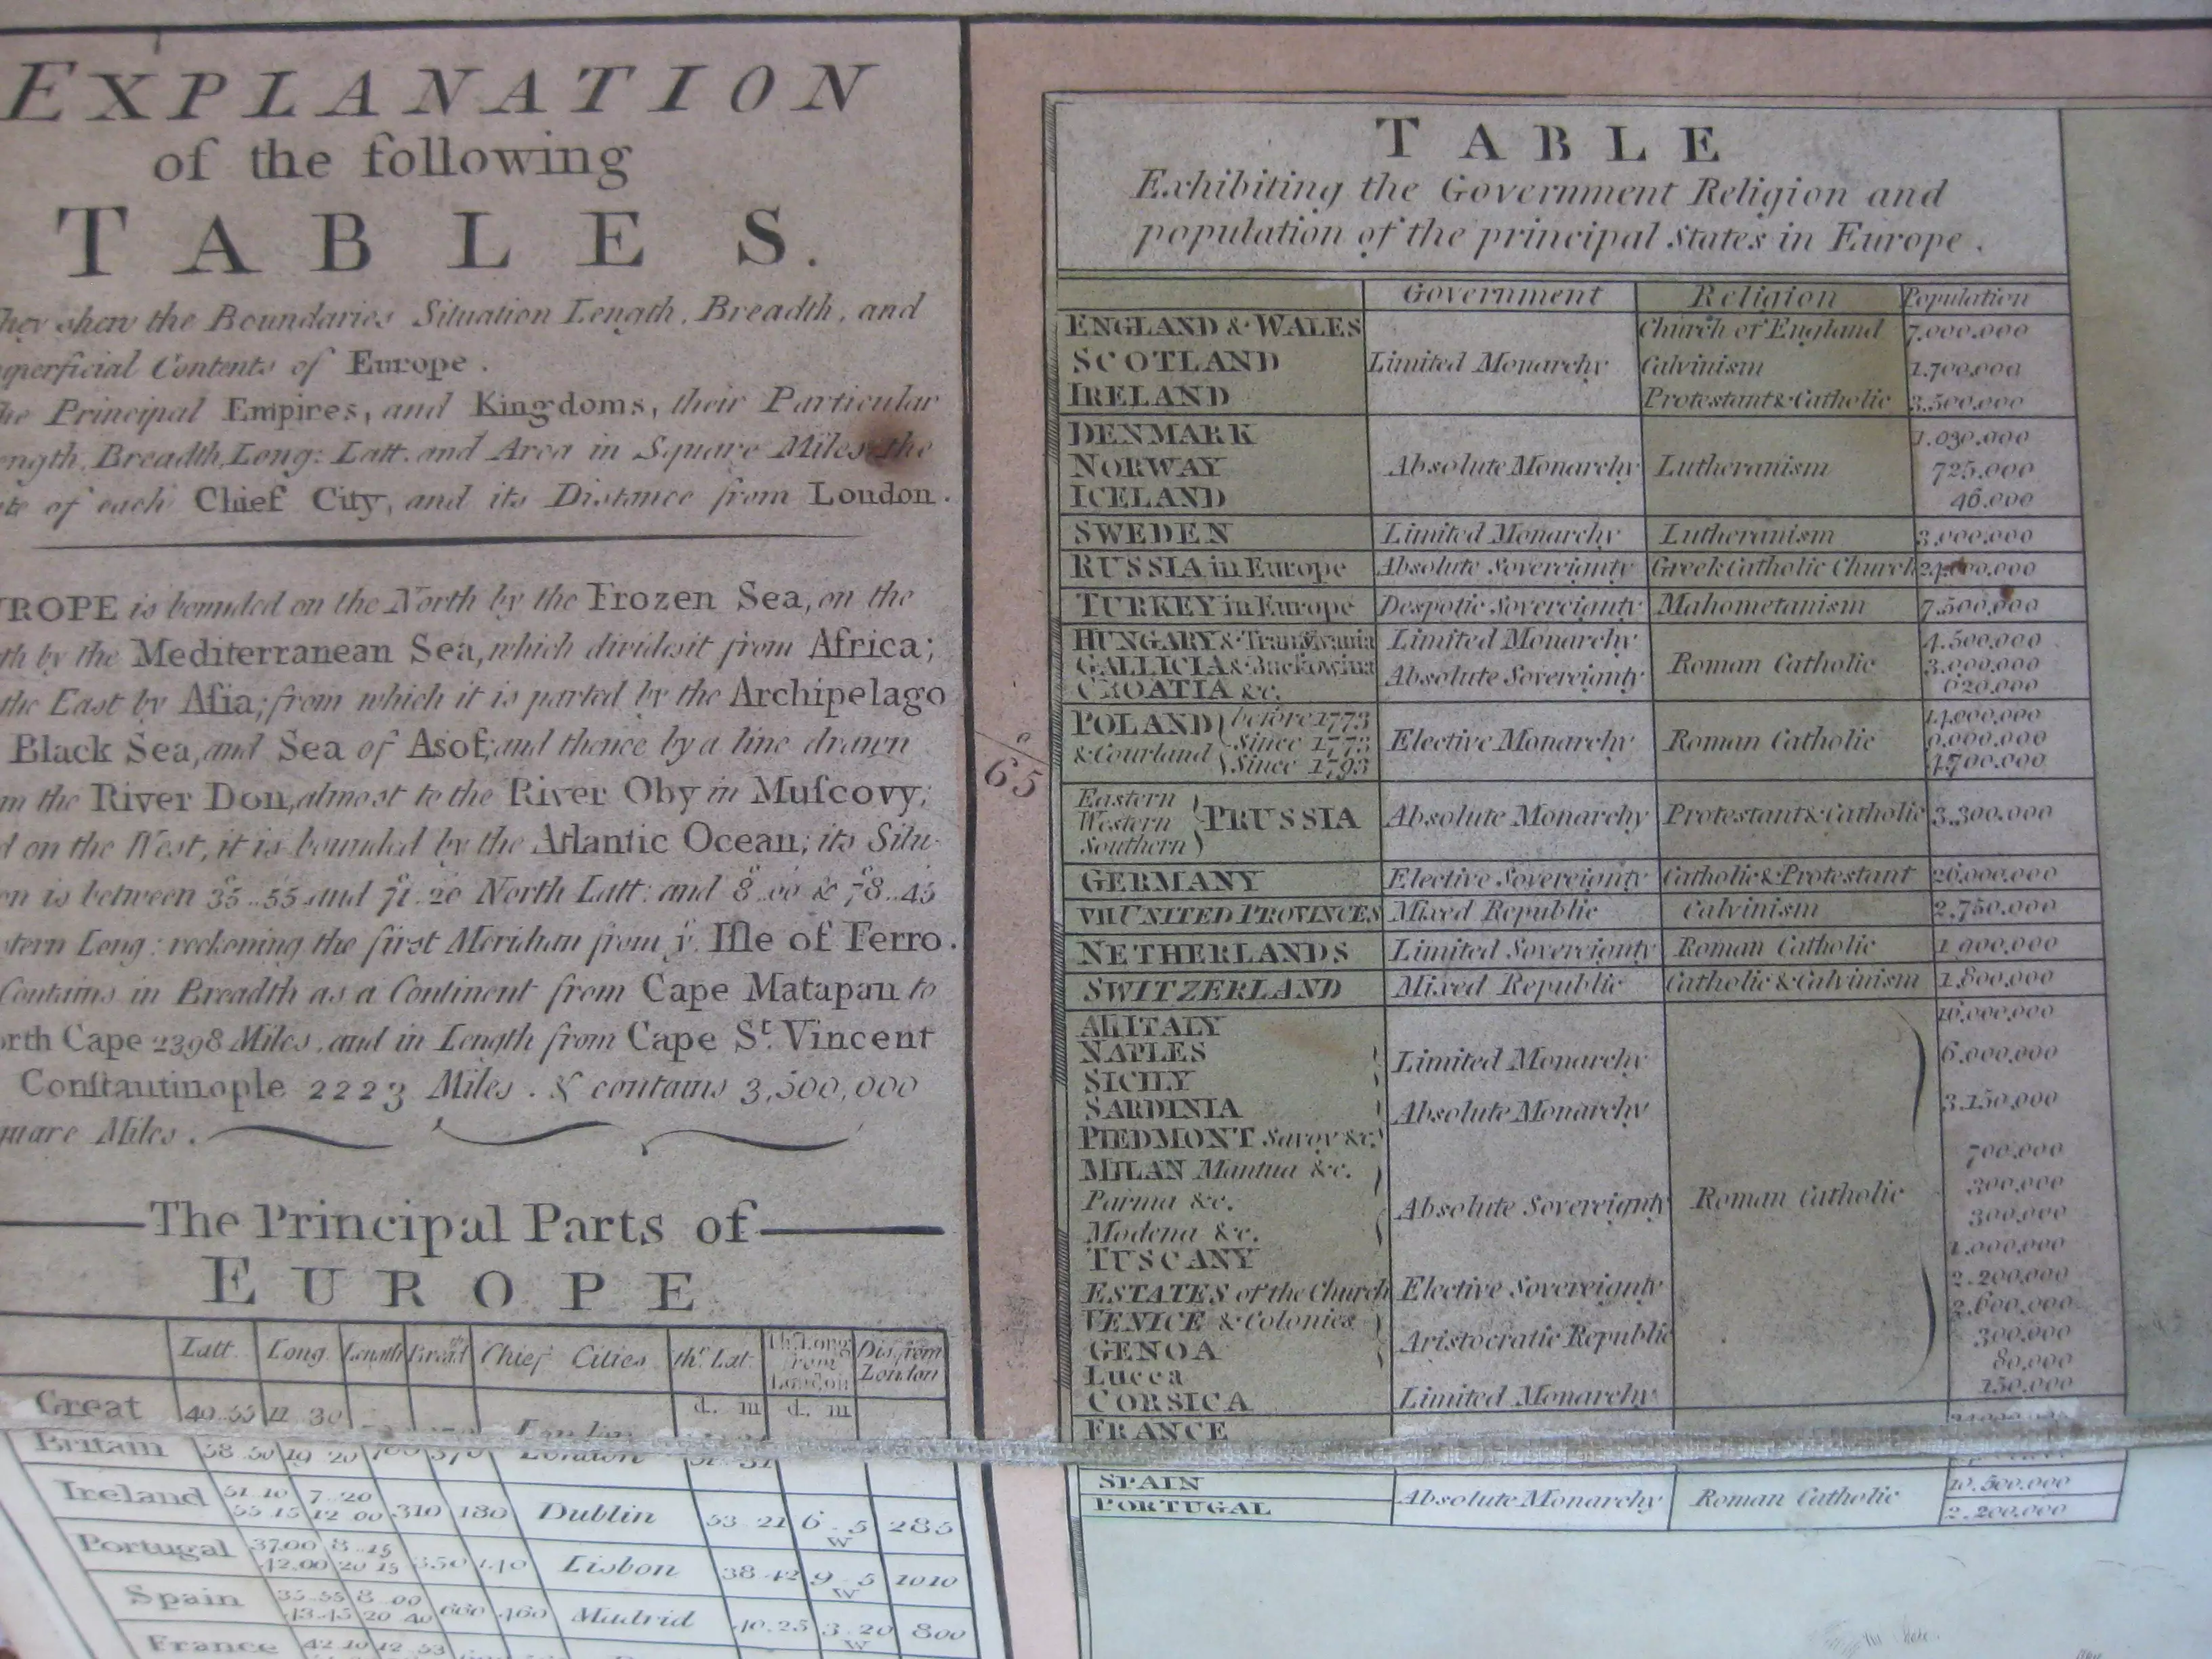 EXPLANATION
of the following
TABLES.
They shew the Boundaries Situation Length, Breadth, and
Superficial Contents of Europe.
The Principal Empires, and Kingdoms, their Particular
Length, Breadth, Long: Latt. and Area in Square Miles, the
of each Chief City, and its Distance from London.
EUROPE is bounded on the North by the Frozen Sea, on the
by the Mediterranean Sea, which divides it from Africa;
the East by Aſia; from which it is parted by the Archipelago
Black Sea, and Sea of Asof; and thence by a line drawn
the River Don, almost to the River Oby in Muſcovy;
on the West, it is bounded by the Atlantic Ocean; its Situ-
is between 35..55 and 71..20 North Latt: and 8..00 & 78..45
Long: reckoning the first Meridian from yͤ. Iſle of Ferro.
Contains in Breadth as a Continent from Cape Matapan to
North Cape 2398 Miles, and in Length from Cape Sᵗ. Vincent
Conſtantinople 2223 Miles. & contains 3,500,000
Square Miles.
The Principal Parts of
EUROPE
Latt. Long. Length Breadᵗʰ Chief Cities thʳ. Lat. thʳ. Long from London Dis. from London
d. m d. m
Great 40..55 11 30
Britain 58 50 19 20 London
Ireland 51 10 7..20
55 15 12 00 310 180 Dublin 53 21 6..5 W 285
Portugal 37.00 8..15
42.00 20 15 350 140 Lisbon 38 42 9..5 W 1010
Spain 35..55 8 00
43.45 20 40 660 460 Madrid 40.25 3..20 W 800
France 42 10 12 53
65
TABLE
Exhibiting the Government Religion and
population of the principal States in Europe.
Government Religion Population
ENGLAND & WALES Church of England 7.000.000
SCOTLAND Limited Monarchy Calvinism 1.700.000
IRELAND Protestant & Catholic 3.500.000
DENMARK 1.030.000
NORWAY Absolute Monarchy Lutheranism 725.000
ICELAND 46.000
SWEDEN Limited Monarchy Lutheranism 3.000.000
RUSSIA in Europe Absolute Sovereignty Greek Catholic Church 24.000.000
TURKEY in Europe Despotic Sovereignty Mahometanism 7.500.000
HUNGARY & Tranſylvania Limited Monarchy 4.500.000
GALLICIA & Buckowina Absolute Sovereignty Roman Catholic 3.000.000
CROATIA &c. 620.000
POLAND before 1773 14.000.000
& Courland Since 1773 Elective Monarchy Roman Catholic 9.000.000
Since 1793 4.700.000
Eastern
Western PRUSSIA Absolute Monarchy Protestant & Catholic 3.300.000
Southern
GERMANY Elective Sovereignty Catholic & Protestant 26.000.000
VII UNITED PROVINCES Mixed Republic Calvinism 2.750.000
NETHERLANDS Limited Sovereignty Roman Catholic 1.900.000
SWITZERLAND Mixed Republic Catholic & Calvinism 1.800.000
All ITALY 16.000.000
NAPLES Limited Monarchy 6.000.000
SICILY
SARDINIA Absolute Monarchy 3.150.000
PIEDMONT Savoy &c.
MILAN Mantua &c. 700.000
Parma &c. Absolute Sovereignty Roman Catholic 300.000
Modena &c. 300.000
TUSCANY 1.000.000
ESTATES of the Church Elective Sovereignty 2.200.000
VENICE & Colonies 2.600.000
GENOA Aristocratic Republic 300.000
Lucca 80.000
CORSICA Limited Monarchy 150.000
FRANCE
SPAIN Absolute Monarchy Roman Catholic 10.500.000
PORTUGAL 2.200.000